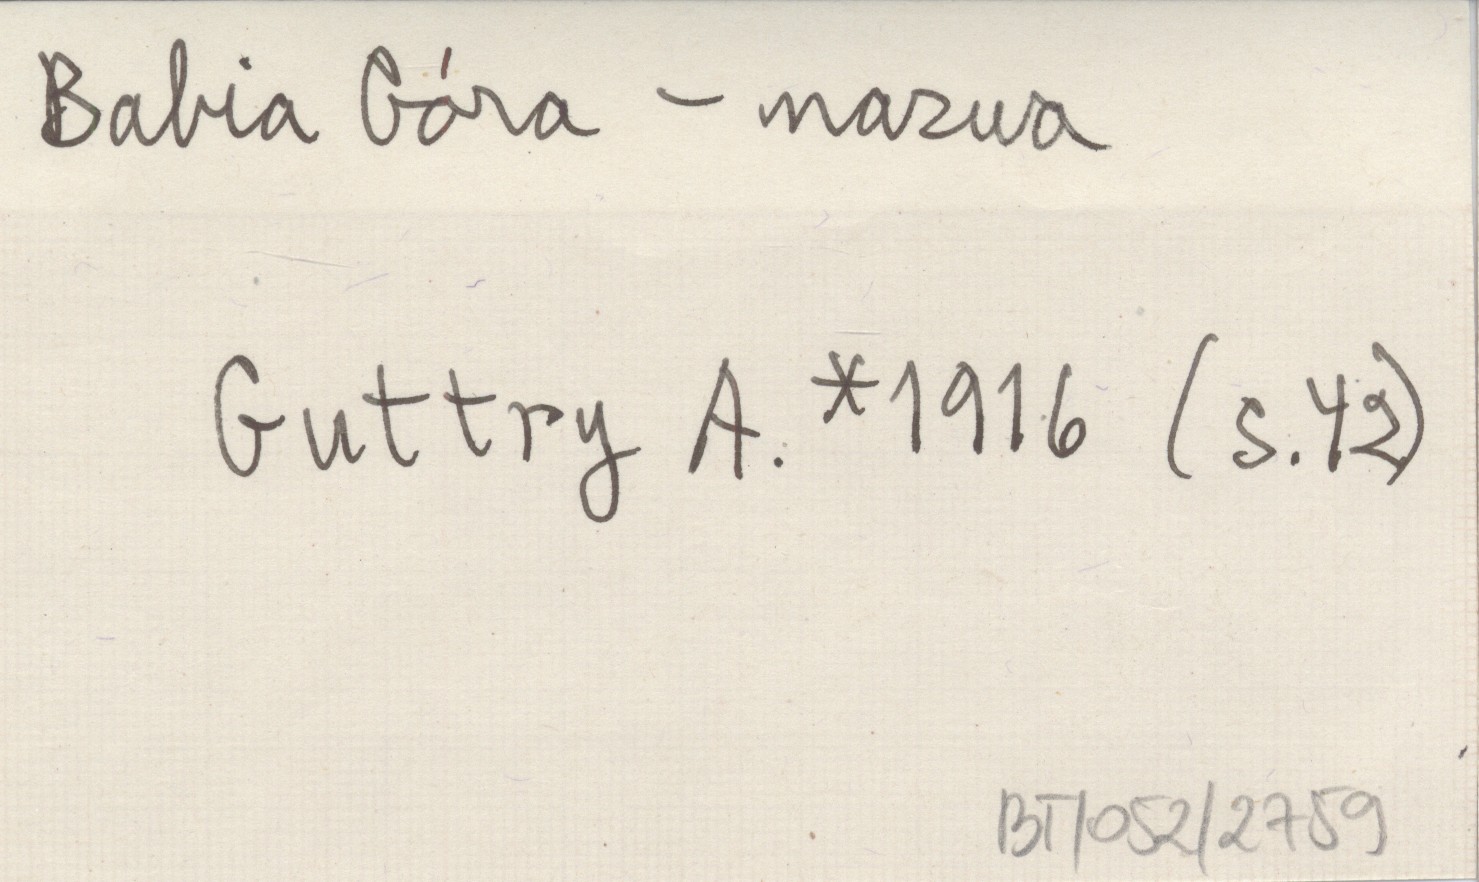 Babia Góra - nazwa
Guttry A. *1916 (s.42)
BT/052/2759